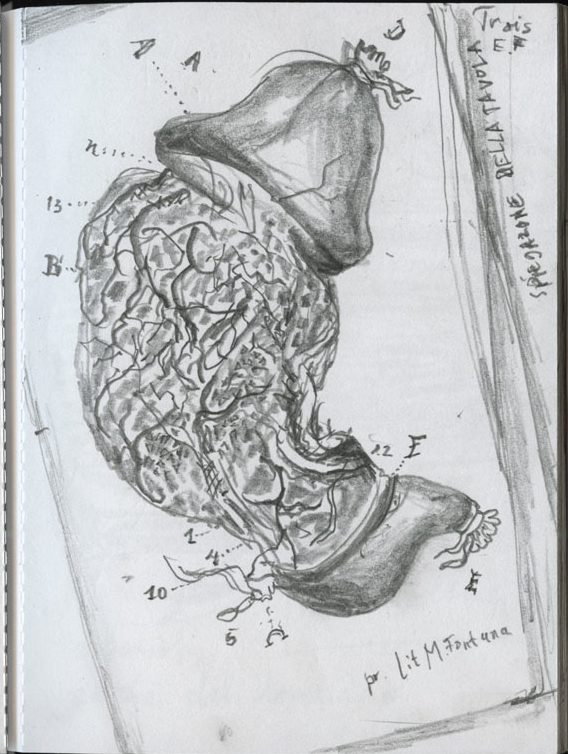 Trois
E.F
SPIEGAZONE BELLA TAVOLA
D
A
n
13
B
12
E
1
4
10
5
E
pr. Lit M. Fontana